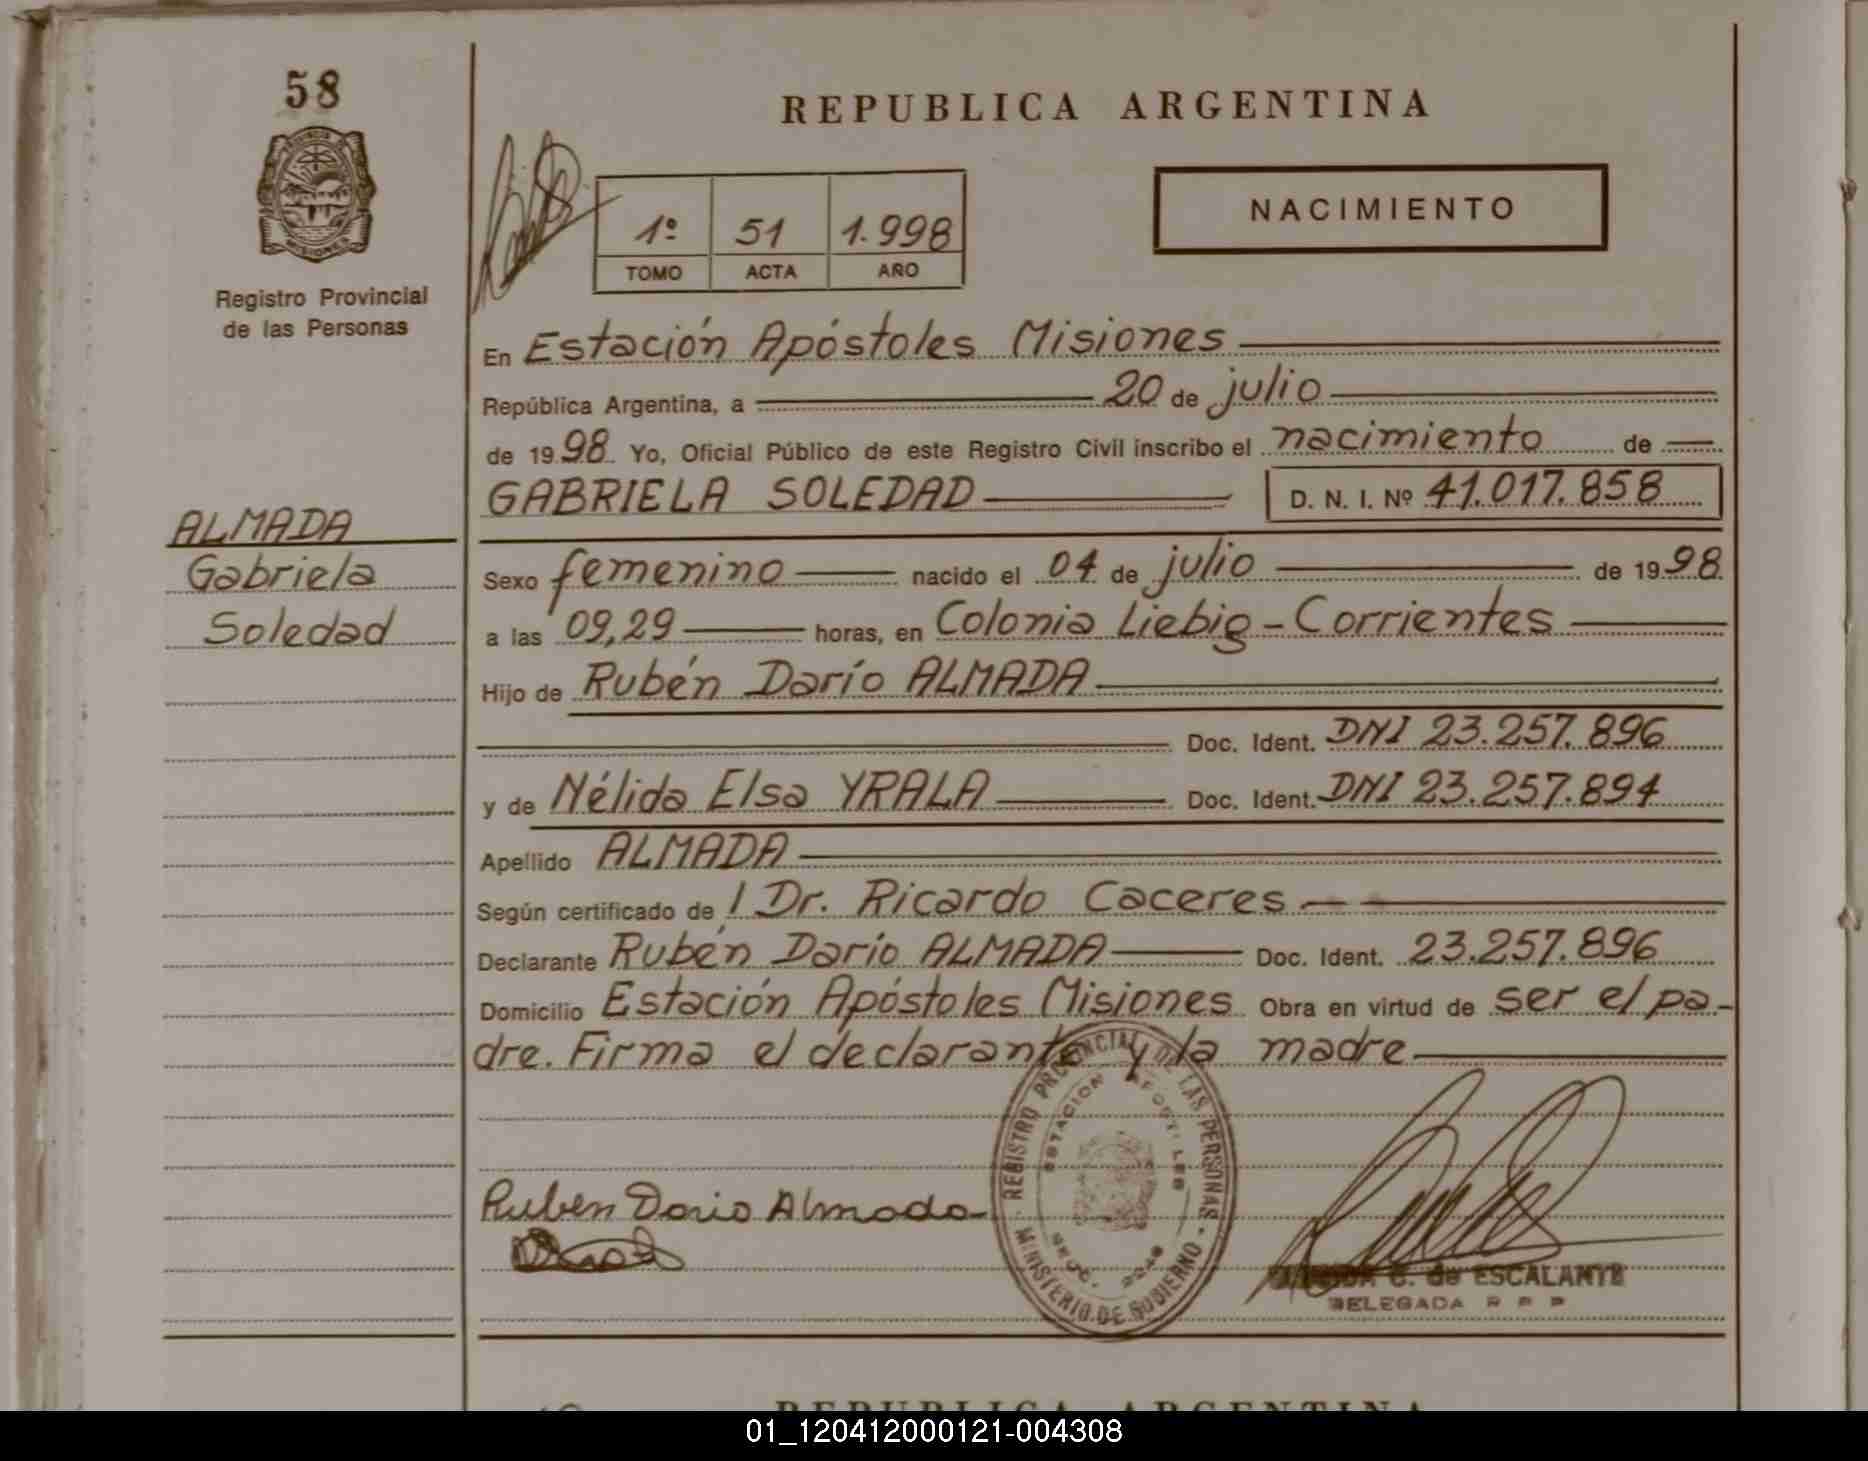 58
PROVINCIA DE
MISIONES
Registro Provincial
de las Personas
ALMADA
Gabriela
Soledad
REPUBLICA ARGENTINA
1º 51 1.998
TOMO ACTA AÑO
NACIMIENTO
En Estación Apóstoles Misiones
República Argentina, a 20 de julio
de 1998 Yo, Oficial Público de este Registro Civil inscribo el nacimiento de
GABRIELA SOLEDAD D. N. I. Nº 41.017.858
Sexo femenino nacido el 04 de julio de 1998
a las 09,29 horas, en Colonia Liebig - Corrientes
Hijo de Rubén Darío ALMADA
Doc. Ident. DNI 23.257.896
y de Nélida Elsa YRALA Doc. Ident. DNI 23.257.894
Apellido ALMADA
Según certificado de / Dr. Ricardo Caceres
Declarante Rubén Darío ALMADA Doc. Ident. 23.257.896
Domicilio Estación Apóstoles Misiones Obra en virtud de ser el pa-
dre. Firma el declarante y la madre
REGISTRO PROVINCIAL DE LAS PERSONAS
ESTACION APOSTOLES
MINISTERIO DE GOBIERNO
Ruben Dario Almada
C. de ESCALANTE
DELEGADA R P P
REPUBLICA ARGENTINA
01_120412000121-004308